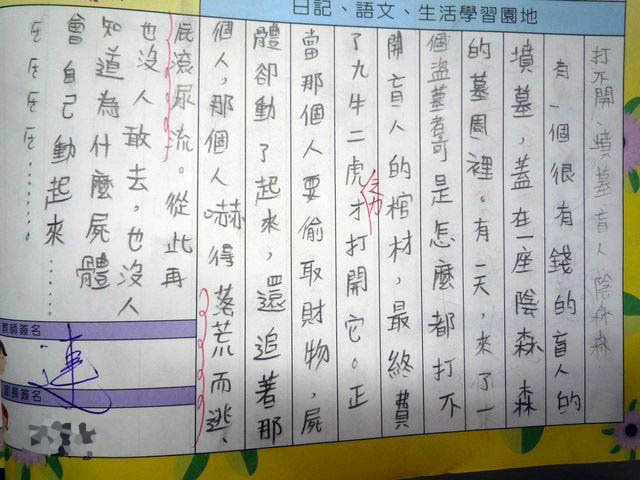 日記、語文、生活學習園地
打不開、墳墓、盲人、陰森森
有一個很有錢的盲人的
墳墓，蓋在一座陰森森
的墓園裡。有一天，來了一
個盜墓者可是怎麼都打不
開盲人的棺材，最終費
了九牛二虎之力才打開它。正
當那個人要偷取財物，屍
體卻動了起來，還追著那
個人，那個人嚇得落荒而逃、
屁滾尿流。從此再
也沒人敢去，也沒人
知道為什麼屍體
會自己動起來……
教師簽名
連
家長簽名